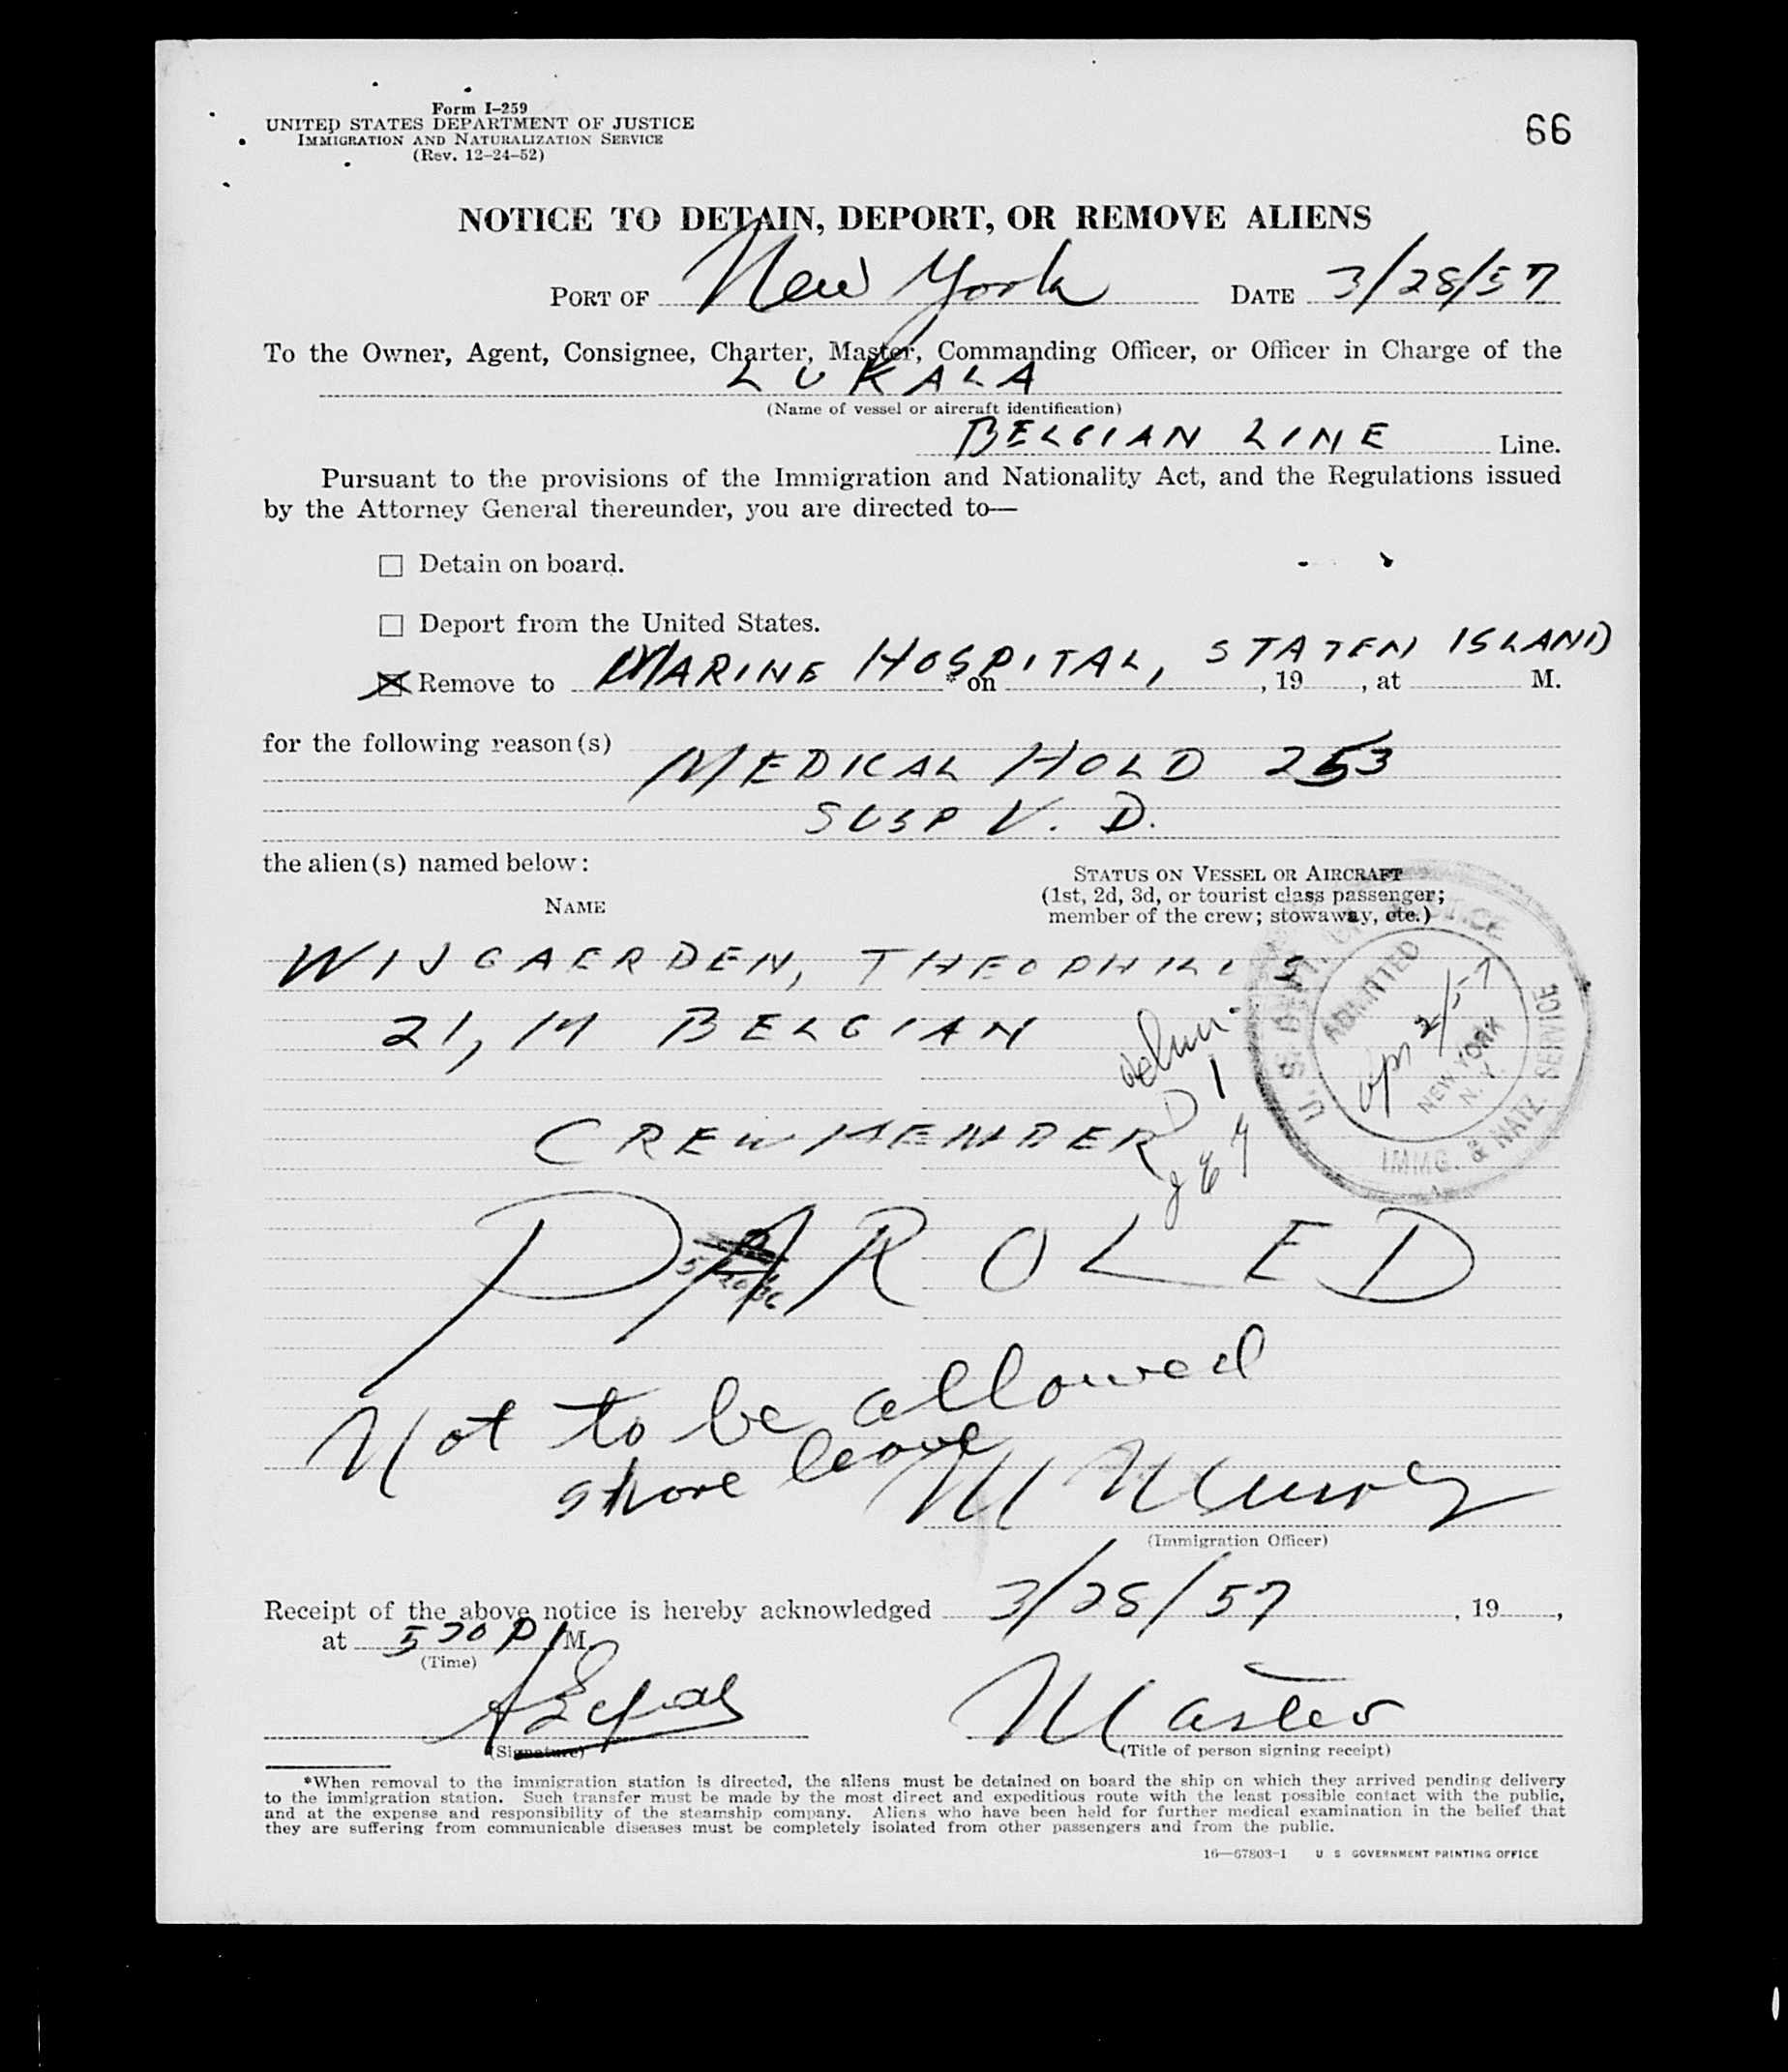 Form I-259
UNITED STATES DEPARTMENT OF JUSTICE
IMMIGRATION AND NATURALIZATION SERVICE
(Rev. 12-24-52)
66
NOTICE TO DETAIN, DEPORT, OR REMOVE ALIENS
PORT OF New York DATE 3/28/57
To the Owner, Agent, Consignee, Charter, Master, Commanding Officer, or Officer in Charge of the
LUKALA
(Name of vessel or aircraft identification)
BELGIAN LINE Line.
Pursuant to the provisions of the Immigration and Nationality Act, and the Regulations issued
by the Attorney General thereunder, you are directed to—
☐ Detain on board.
☐ Deport from the United States.
☒ Remove to MARINE HOSPITAL, STATEN ISLAND * on , 19 , at M.
for the following reason(s)
MEDICAL HOLD 253
SUSP V. D.
the alien(s) named below:
STATUS ON VESSEL OR AIRCRAFT
(1st, 2d, 3d, or tourist class passenger;
member of the crew; stowaway, etc.)
NAME
WIJGAERDEN, THEOPHILUS
21, M BELGIAN
CREWMEMBER
Adm.
D 1
U. S. DEPT. OF JUSTICE
ADMITTED
Apr 2/57
NEW YORK
N. Y.
IMMG. & NATZ. SERVICE
PAROLED
Not to be allowed
shore leave
(Immigration Officer)
Receipt of the above notice is hereby acknowledged 3/28/57 , 19 ,
at 5 P M.
(Time)
Master
(Signature)
(Title of person signing receipt)
*When removal to the immigration station is directed, the aliens must be detained on board the ship on which they arrived pending delivery
to the immigration station. Such transfer must be made by the most direct and expeditious route with the least possible contact with the public,
and at the expense and responsibility of the steamship company. Aliens who have been held for further medical examination in the belief that
they are suffering from communicable diseases must be completely isolated from other passengers and from the public.
16—67803-1 U S GOVERNMENT PRINTING OFFICE